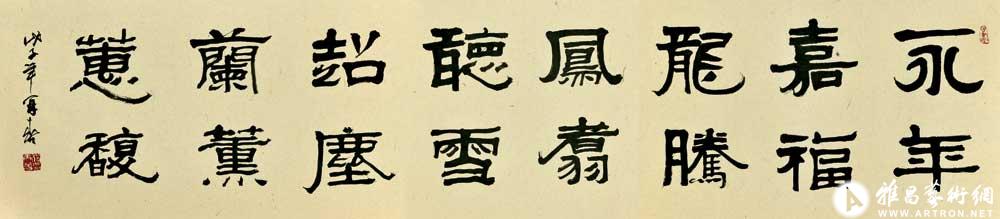 永年
嘉福
龍騰
鳳翥
聽雪
超塵
蘭薰
蕙馥
戊子年
雅昌藝術網
WWW.ARTRON.NET